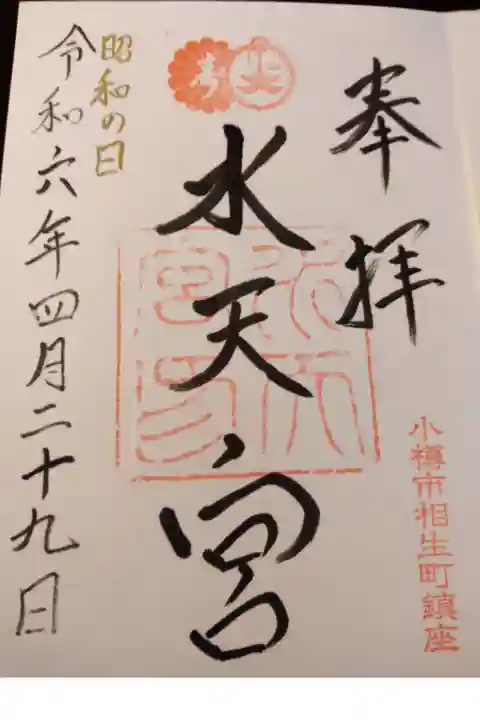 奉拝
小樽市相生町鎮座
水天宮
昭和の日
令和六年四月二十九日